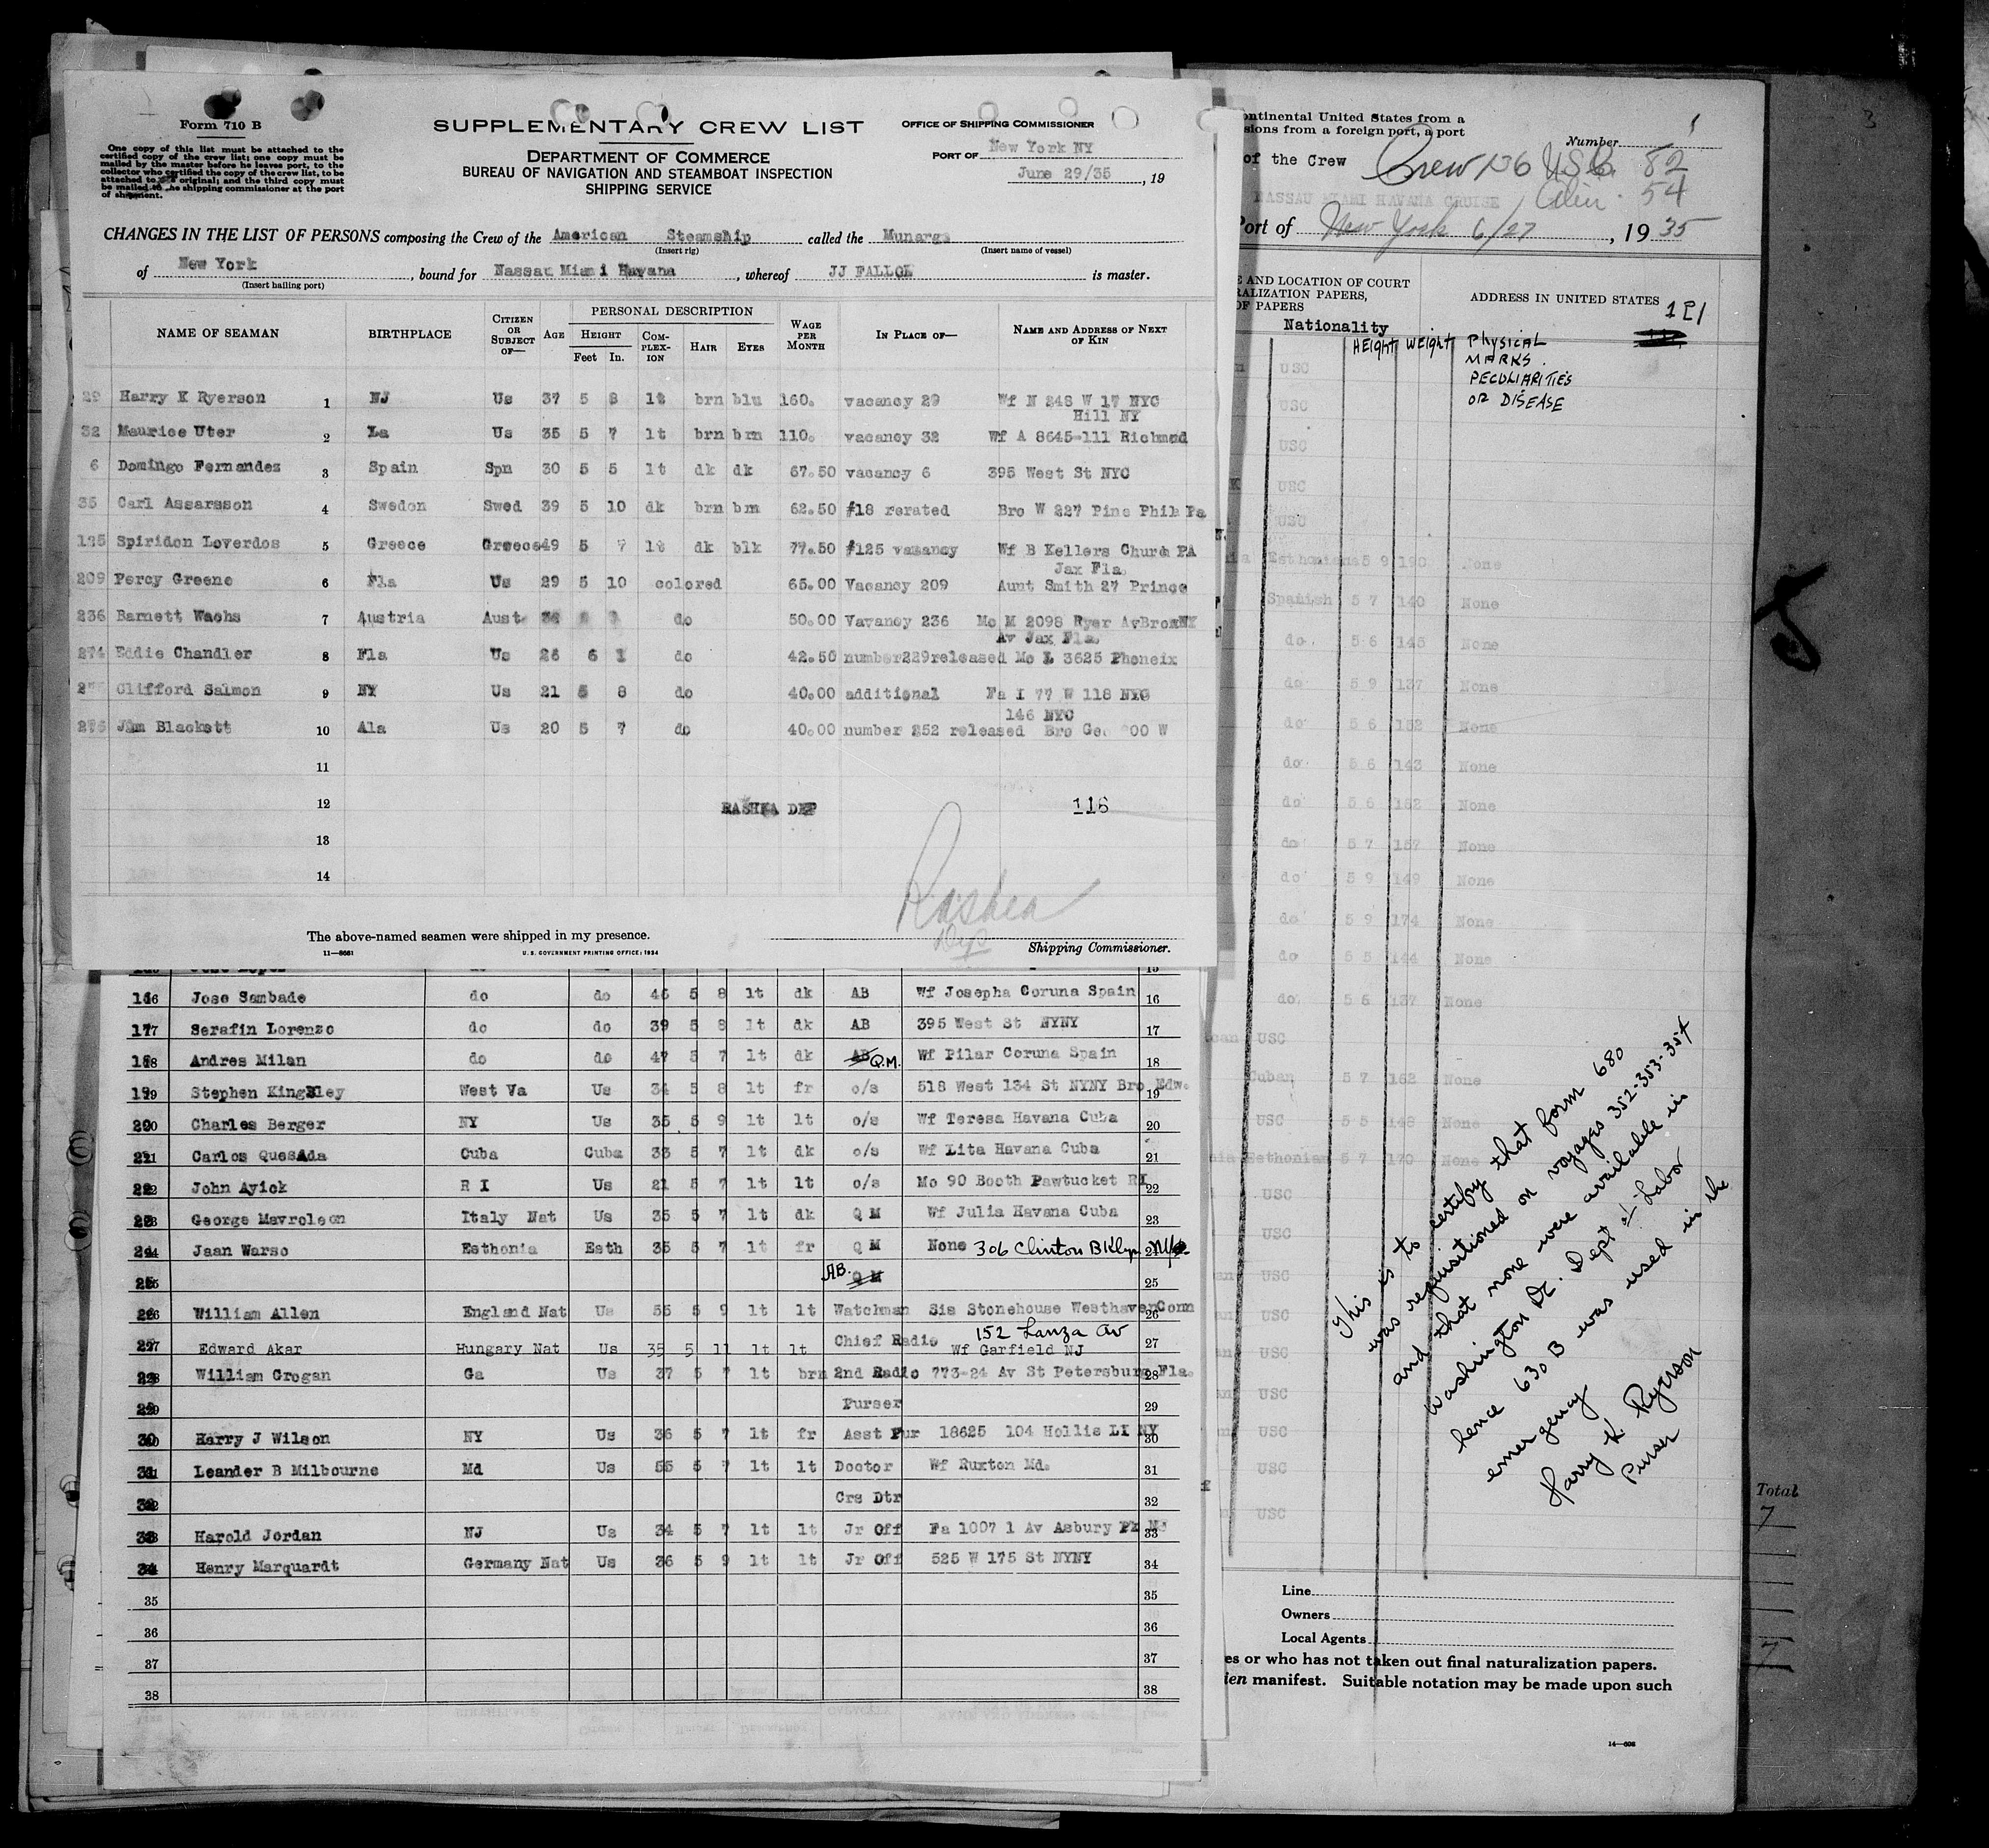 Form 710 B
One copy of this list must be attached to the
certified copy of the crew list; one copy must be
mailed by the master before he leaves port, to the
collector who certified the copy of the crew list, to be
attached to original; and the third copy must
be mailed to the shipping commissioner at the port
of shipment.
SUPPLEMENTARY CREW LIST
DEPARTMENT OF COMMERCE
BUREAU OF NAVIGATION AND STEAMBOAT INSPECTION
SHIPPING SERVICE
OFFICE OF SHIPPING COMMISSIONER
PORT OF New York NY
June 29/35, 19
CHANGES IN THE LIST OF PERSONS composing the Crew of the American Steamship called the Munargo
(Insert rig) (Insert name of vessel)
of New York, bound for Nassau Miami Havana, whereof JJ FALLON is master.
(Insert hailing port)
NAME OF SEAMAN BIRTHPLACE CITIZEN OR SUBJECT OF— AGE PERSONAL DESCRIPTION HEIGHT Feet In. COMPLEXION HAIR EYES WAGE PER MONTH IN PLACE OF— NAME AND ADDRESS OF NEXT OF KIN
29 Harry K Ryerson 1 NJ Us 37 5 8 lt brn blu 160. vacancy 29 Wf N 248 W 17 NYC
Hill NY
32 Maurice Uter 2 La Us 35 5 7 lt brn brn 110. vacancy 32 Wf A 8645-111 Richmnd
6 Domingo Fernandez 3 Spain Spn 30 5 5 lt dk dk 67.50 vacancy 6 395 West St NYC
35 Carl Assarsson 4 Sweden Swed 39 5 10 dk brn brn 62.50 #18 rerated Bro W 227 Pine Phil Pa
125 Spiridon Loverdos 5 Greece Greece 49 5 7 lt dk blk 77.50 #125 vacancy Wf B Kellers Church PA
Jax Fla.
209 Percy Greene 6 Fla Us 29 5 10 colored 65.00 Vacancy 209 Aunt Smith 27 Prince
236 Barnett Wachs 7 Austria Aust do 50.00 Vavancy 236 Mo M 2098 Ryer AvBronxNY
Av Jax Fla.
274 Eddie Chandler 8 Fla Us 26 6 1 do 42.50 number229released Mo L 3625 Phoneix
Clifford Salmon 9 NY Us 21 5 8 do 40.00 additional Fa I 77 W 118 NYC
146 NYC
276 Jim Blackett 10 Ala Us 20 5 7 do 40.00 number 252 released Bro Geo 00 W
11
12 RASHKA DEP 116
13
14
The above-named seamen were shipped in my presence.
Shipping Commissioner.
11—8661 U.S. GOVERNMENT PRINTING OFFICE: 1934
15
16 Jose Sambade do do 46 5 8 lt dk AB Wf Josepha Coruna Spain 16
17 Serafin Lorenzo do do 39 5 8 lt dk AB 395 West St NYNY 17
18 Andres Milan do do 47 5 7 lt dk AB Q.M. Wf Pilar Coruna Spain 18
19 Stephen Kingsley West Va Us 34 5 8 lt fr o/s 518 West 134 St NYNY Bro Edw. 19
20 Charles Berger NY Us 35 5 9 lt lt o/s Wf Teresa Havana Cuba 20
21 Carlos Quesada Cuba Cuba 33 5 7 lt dk o/s Wf Lita Havana Cuba 21
22 John Ayick R I Us 21 5 7 lt lt o/s Mo 90 Booth Pawtucket RI 22
23 George Mavroleon Italy Nat Us 35 5 7 lt dk Q M Wf Julia Havana Cuba 23
24 Jaan Warso Esthonia Esth 35 5 7 lt fr Q M None 306 Clinton BKlyn 24
25 AB. Q M 25
26 William Allen England Nat Us 55 5 9 lt lt Watchman Sis Stonehouse Westhaven Conn 26
152 Lanza Av
27 Edward Akar Hungary Nat Us 35 5 11 lt lt Chief Radio Wf Garfield NJ 27
28 William Grogan Ga Us 37 5 7 lt brn 2nd Radio 773-24 Av St Petersburg Fla. 28
29 Purser 29
30 Harry J Wilson NY Us 36 5 7 lt fr Asst Pur 18625 104 Hollis LI NY 30
31 Leander B Milbourne Md Us 55 5 7 lt lt Doctor Wf Ruxton Md. 31
32 Crs Dtr 32
33 Harold Jordan NJ Us 34 5 7 lt lt Jr Off Fa 1007 1 Av Asbury Pk NJ 33
34 Henry Marquardt Germany Nat Us 36 5 9 lt lt Jr Off 525 W 175 St NYNY 34
35 35
36 36
37 37
38 38
ontinental United States from a
sions from a foreign port, a port
Number
of the Crew Crew 136 USC 82
NASSAU MIAMI HAVANA CRUISE Alien 54
Port of New York 6/27, 1935
E AND LOCATION OF COURT
RALIZATION PAPERS,
OF PAPERS
ADDRESS IN UNITED STATES
Nationality
HEIGHT WEIGHT PHYSICAL MARKS. PECULIARITIES OR DISEASE
USC
USC
USC
USC
USC
Esthonian 5 9 190 None
Spanish 5 7 140 None
do 5 6 145 None
do 5 9 137 None
do 5 6 152 None
do 5 6 143 None
do 5 6 162 None
do 5 7 157 None
do 5 9 149 None
do 5 9 174 None
do 5 5 144 None
do 5 6 137 None
USC
Cuban 5 7 162 None
USC 5 5 148 None
Esthonian 5 7 170 None
USC
USC
USC
USC
USC
USC
USC
USC
USC
This is to certify that form 680
was requisitioned on voyages 352-353-354
and that none were available in
Washington Dc. Dept of Labor
hence 630 B was used in the
emergency
Harry K Ryerson
Purser
Line
Owners
Local Agents
es or who has not taken out final naturalization papers.
ien manifest. Suitable notation may be made upon such
14—608
Total
7
7